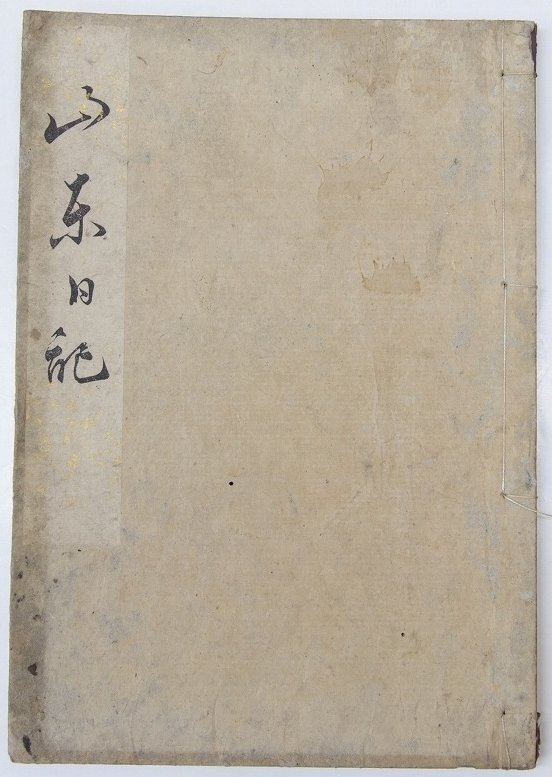 山東日記